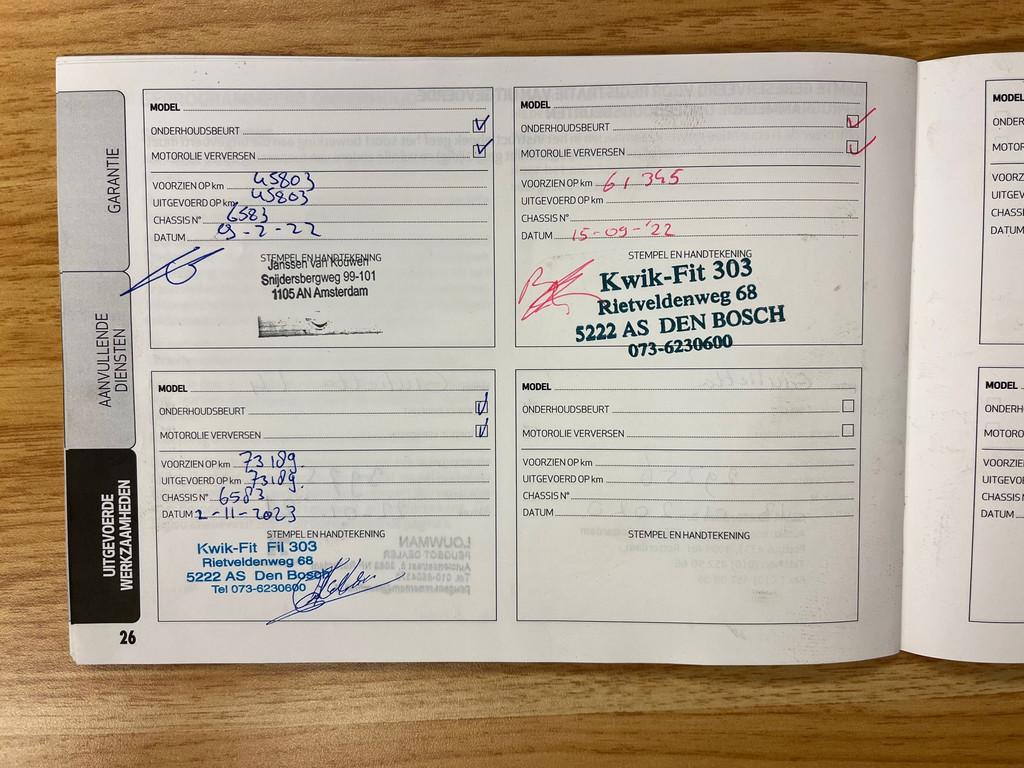 GARANTIE
AANVULLENDE
DIENSTEN
UITGEVOERDE
WERKZAAMHEDEN
MODEL
ONDERHOUDSBEURT
MOTOROLIE VERVERSEN
VOORZIEN OP km 45803
UITGEVOERD OP km 45803
CHASSIS N° 6583
DATUM 09-2-22
STEMPEL EN HANDTEKENING
Janssen van Kouwen
Snijdersbergweg 99-101
1105 AN Amsterdam
MODEL
ONDERHOUDSBEURT
MOTOROLIE VERVERSEN
VOORZIEN OP km 61345
UITGEVOERD OP km
CHASSIS N°
DATUM 15-09-'22
STEMPEL EN HANDTEKENING
Kwik-Fit 303
Rietveldenweg 68
5222 AS DEN BOSCH
073-6230600
MODEL
ONDERHOUDSBEURT
MOTOROLIE VERVERSEN
VOORZIEN OP km 73189.
UITGEVOERD OP km 73189.
CHASSIS N° 6583
DATUM 2-11-2023
STEMPEL EN HANDTEKENING
Kwik-Fit Fil 303
Rietveldenweg 68
5222 AS Den Bosch
Tel 073-6230600
MODEL
ONDERHOUDSBEURT
MOTOROLIE VERVERSEN
VOORZIEN OP km
UITGEVOERD OP km
CHASSIS N°
DATUM
STEMPEL EN HANDTEKENING
26
MODEL
MODEL